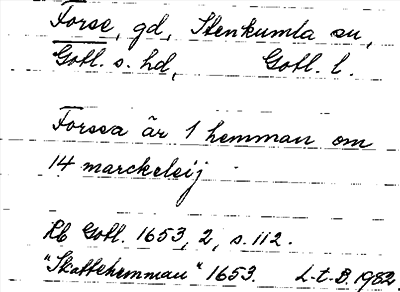 Forse, gd, Stenkumla sn,
Gotl. s. hd, Gotl. l.
Forssa är 1 hemman om
14 marckeleij
Rb Gotl. 1653, 2, s. 112.
"Skattehemman" 1653. L-t-B. 1982.